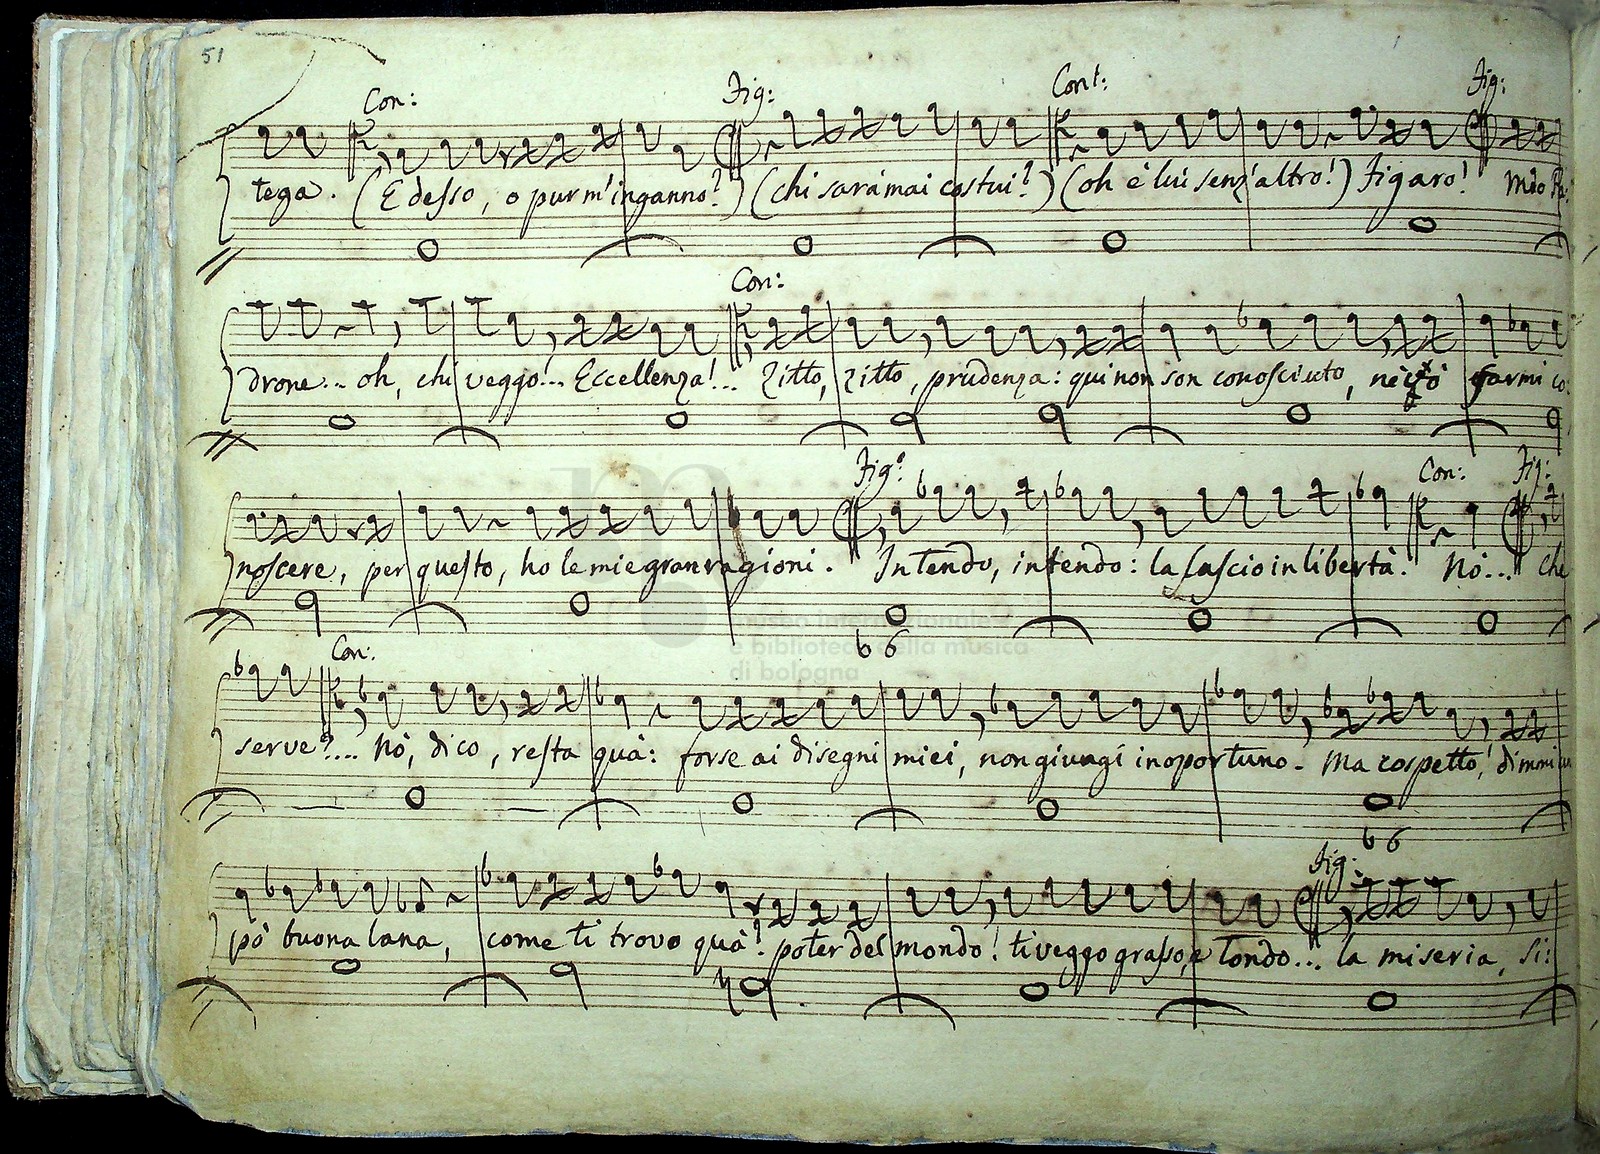 51
Con: Fig: Cont: Fig:
tega. (E desso, o pur m'inganno?) (chi sarà mai costui?) (oh è lui senz'altro!) Figaro! Mio Pa:
Con:
drone... oh, chi veggo!... Eccellenza!... Zitto, zitto, prudenza: qui non son conosciuto, nè vò farmi co:
Fig: Con: Fig:
noscere, per questo, ho le mie gran ragioni. Intendo, intendo: la lascio in libertà. Nò... Che
b 6
museo internazionale
e biblioteca della musica
di bologna
Con:
serve?.... Nò, dico, resta quà: forse ai disegni miei, non giungi inoportuno. Ma cospetto! dimmi un
b 6
Fig:
pò buona lana, come ti trovo quà? poter del mondo! ti veggo grasso, e tondo... la miseria, Si: